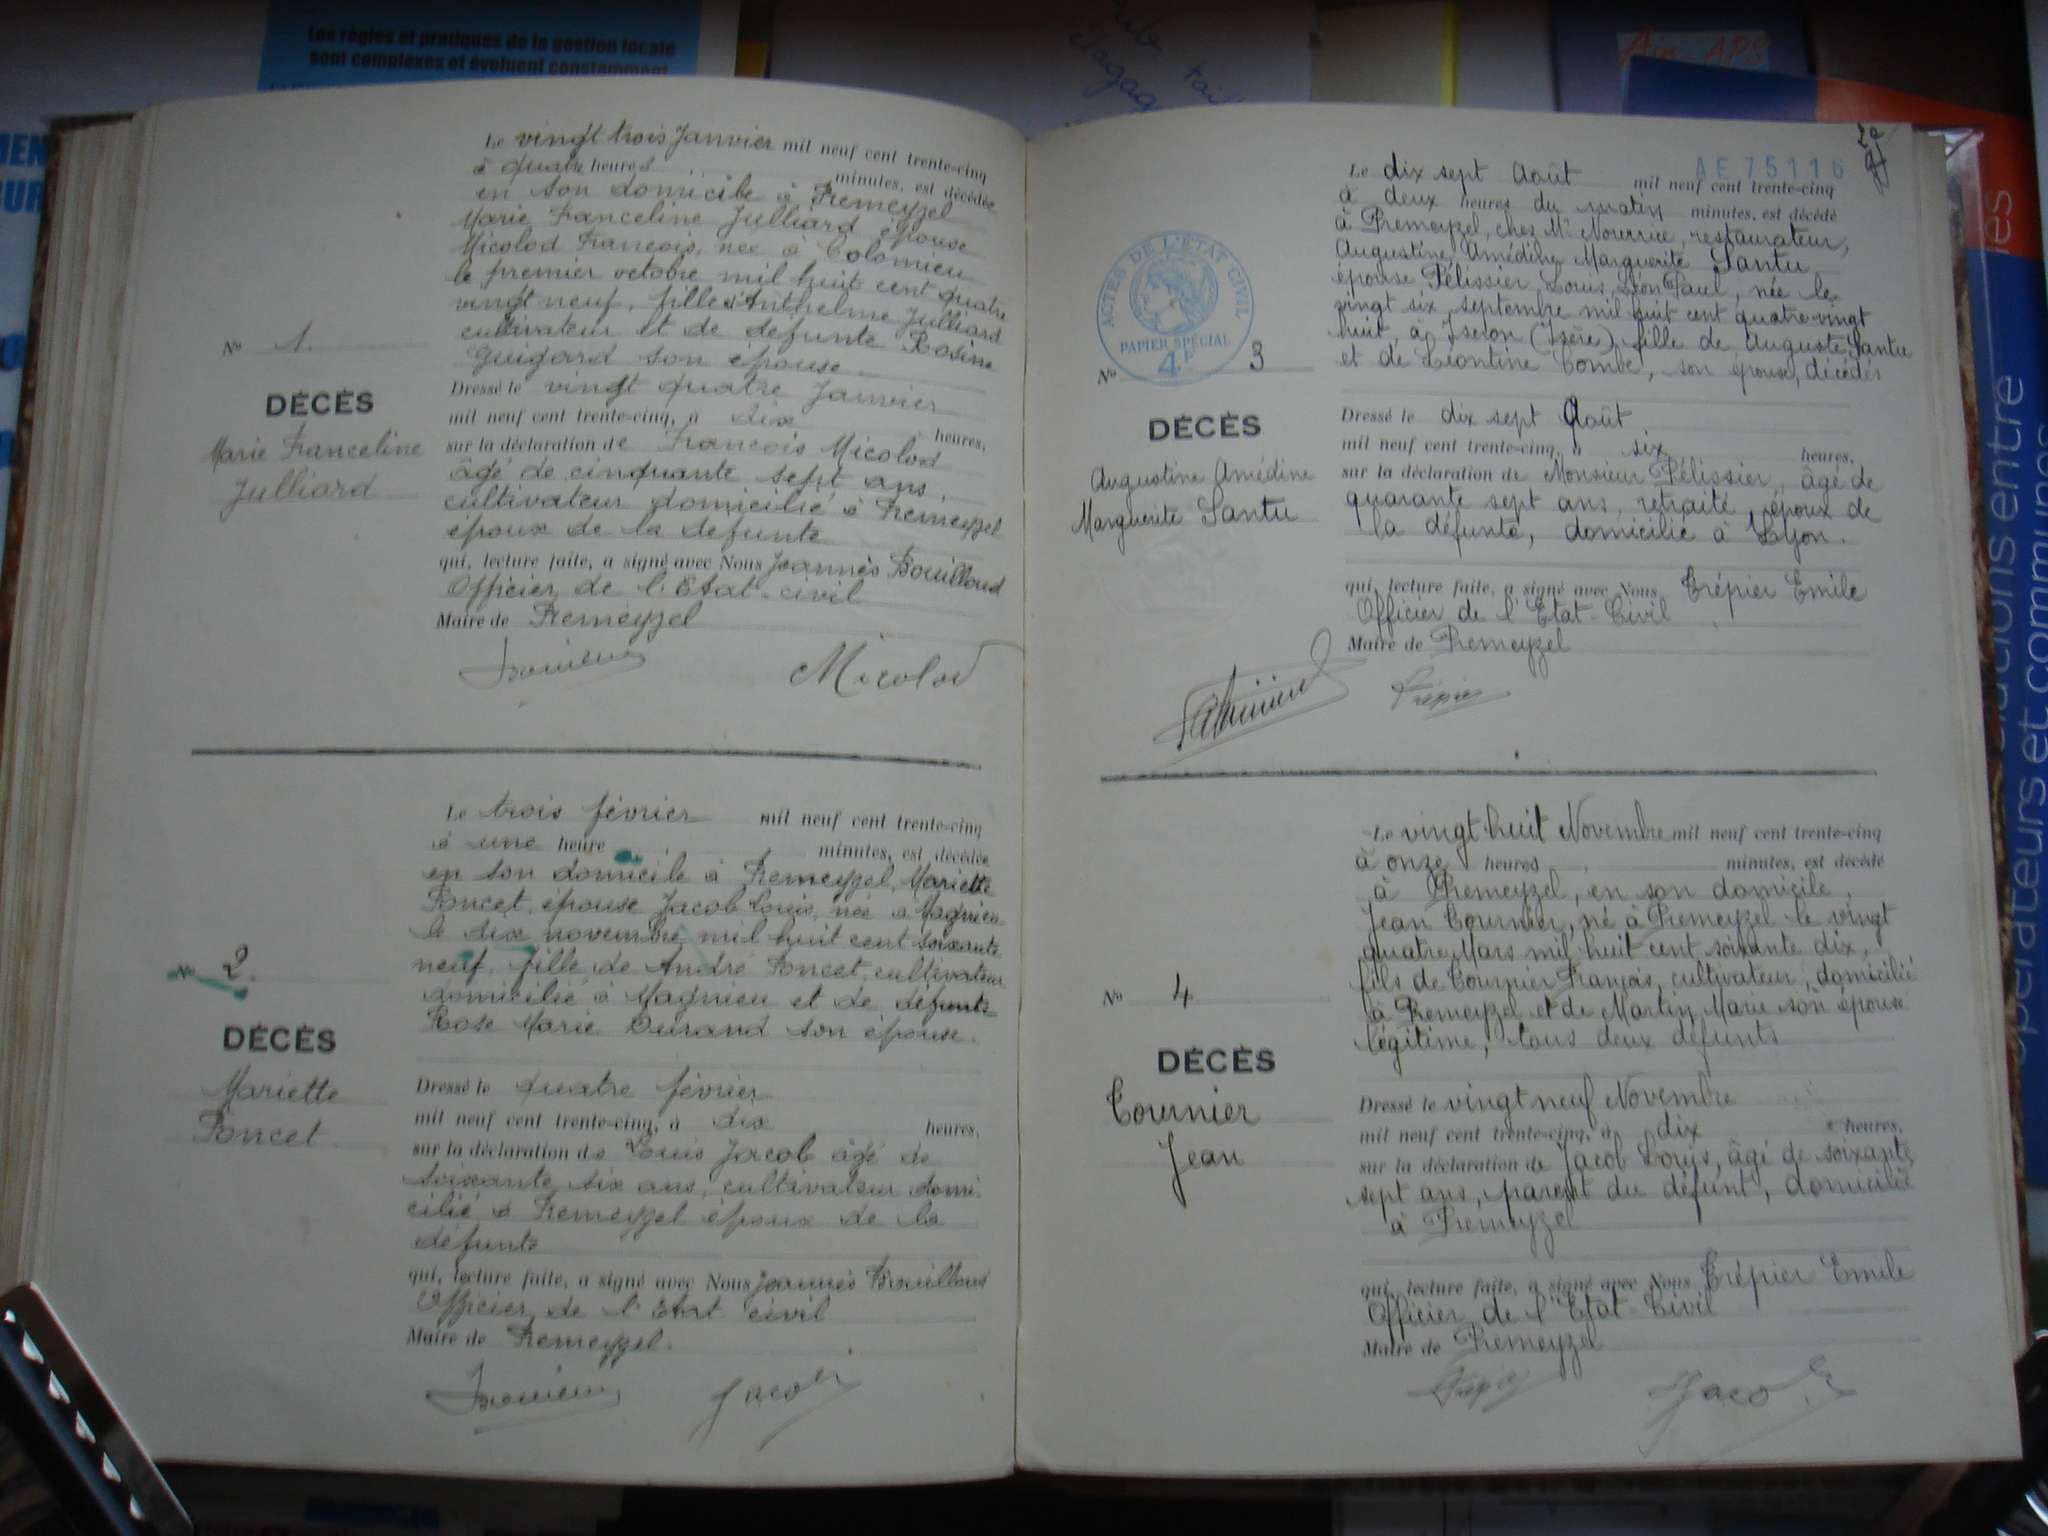 Les règles et pratiques de la gestion locale
sont complexes et évoluent constamment
Ain APS
Le vingt trois Janvier mil neuf cent trente-cinq
à quatre heures minutes, est décédée
en son domicile à Premeyzel
Marie Franceline Julliard épouse
Micolod François, née à Colomieu
le premier octobre mil huit cent quatre
vingt neuf, fille d'Anthelme Julliard
cultivateur et de défunte Rosine
Guigard son épouse
No 1.
DÉCÈS
Marie Franceline
Julliard
Dressé le vingt quatre Janvier
mil neuf cent trente-cinq, à dix heures,
sur la déclaration de François Micolod
âgé de cinquante sept ans,
cultivateur domicilié à Premeyzel
époux de la défunte
qui, lecture faite, a signé avec Nous Joannès Bouilloud
Officier de l'Etat-civil
Maire de Premeyzel
Micolod
Le trois février mil neuf cent trente-cinq
à une heure minutes, est décédée
en son domicile à Premeyzel, Mariette
Poncet, épouse Jacob Louis, née à Magnieu
le dix novembre mil huit cent soixante
neuf, fille de André Poncet, cultivateur
domicilié à Magnieu et de défunte
Rose Marie Durand son épouse.
No 2.
DÉCÈS
Mariette
Poncet
Dressé le quatre février
mil neuf cent trente-cinq, à dix heures,
sur la déclaration de Louis Jacob âgé de
soixante six ans, cultivateur domi
cilié à Premeyzel époux de la
défunte
qui, lecture faite, a signé avec Nous Joannès Bouilloud
Officier de l'Etat civil
Maire de Premeyzel.
Jacob
AE 75116
Le dix sept Août mil neuf cent trente-cinq
à deux heures du matin minutes, est décédé
à Premeyzel, chez Mr Nourrice, restaurateur,
Augustine Amédine Marguerite Santu
épouse Pélissier, Louis Léon Paul, née le
vingt six septembre mil huit cent quatre-vingt
huit, à Iseron (Isère), fille de Auguste Santu
et de Léontine Combe, son épouse, décédés
ACTES DE L'ÉTAT CIVIL
PAPIER SPÉCIAL
4F
No 3
DÉCÈS
Augustine Amédine
Marguerite Santu
Dressé le dix sept Août
mil neuf cent trente-cinq, à six heures,
sur la déclaration de Monsieur Pélissier, âgé de
quarante sept ans, retraité, époux de
la défunte, domicilié à Lyon.
qui, lecture faite, a signé avec Nous Trépier Emile
Officier de l'Etat-Civil
Maire de Premeyzel
Trépier
Le vingt huit Novembre mil neuf cent trente-cinq
à onze heures minutes, est décédé
à Premeyzel, en son domicile,
Jean Tournier, né à Premeyzel le vingt
quatre Mars mil huit cent soixante dix,
fils de Tournier François, cultivateur, domicilié
à Premeyzel et de Martin Marie son épouse
légitime, tous deux défunts
No 4
DÉCÈS
Tournier
Jean
Dressé le vingt neuf Novembre
mil neuf cent trente-cinq, à dix heures,
sur la déclaration de Jacob Louis, âgé de soixante
sept ans, parent du défunt, domicilié
à Premeyzel
qui, lecture faite, a signé avec Nous Trépier Emile
Officier de l'Etat-Civil
Maire de Premeyzel
Trépier
Jacob
opérateurs et communes
relations entre